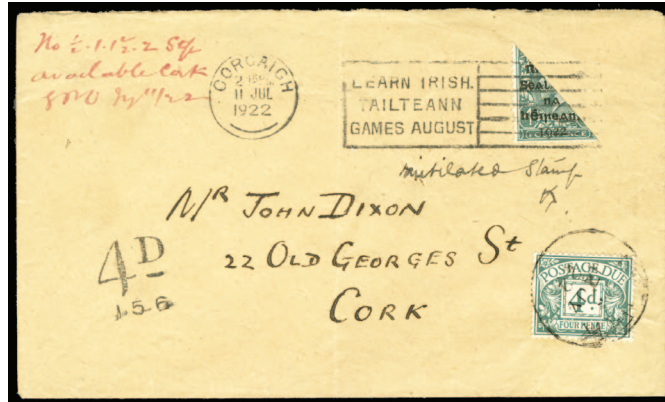 No ½.1.1½.2 Stp
available Cork
GPO July 11/22
CORCAIGH
11 JUL
1922
LEARN IRISH.
TAILTEANN
GAMES AUGUST
Seal
na
hÉirean
1922
mutilated Stamp
Mr JOHN DIXON
22 OLD GEORGES St
CORK
4D
156
POSTAGE DUE
4D.
FOUR PENCE